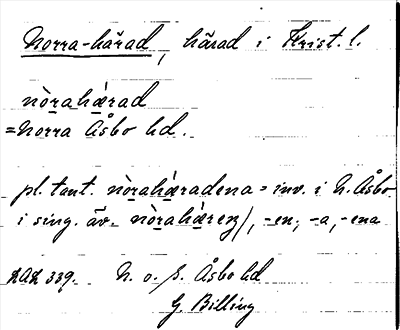 Norra-härad, härad i Krist. l.
nòrahä́rad
= Norra Åsbo hd.
pl. tant. nòrahä́radena = inv. i N. Åsbo
i sing. äv. nòrahä́ren/, -en, -a, -ena
N. o. S. Åsbo hd
G. Billing